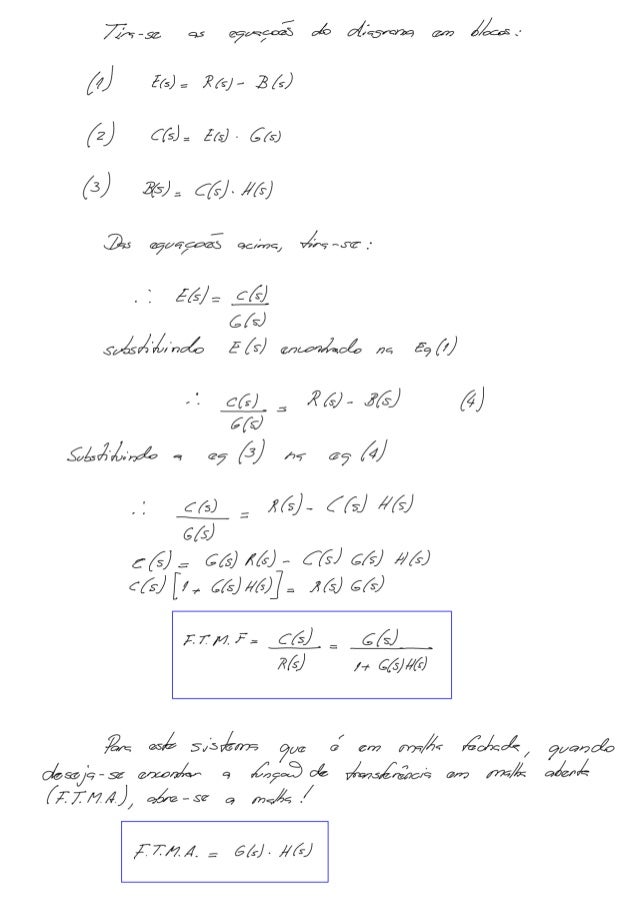 Tira-se as equações do diagrama em blocos:
(1) E(s) = R(s) - B(s)
(2) C(s) = E(s) . G(s)
(3) B(s) = C(s) . H(s)
Das equações acima, tira-se:
∴ E(s) = C(s)/G(s)
substituindo E(s) encontrado na Eq (1)
∴ C(s)/G(s) = R(s) - B(s) (4)
Substituindo a eq (3) na eq (4)
∴ C(s)/G(s) = R(s) - C(s) H(s)
C(s) = G(s) R(s) - C(s) G(s) H(s)
C(s) [1 + G(s) H(s)] = R(s) G(s)
F.T.M.F = C(s)/R(s) = G(s)/1 + G(s) H(s)
Para este sistema que é em malha fechada, quando
deseja-se encontrar a função de transferência em malha aberta
(F.T.M.A.), abre-se a malha!
F.T.M.A. = G(s) . H(s)